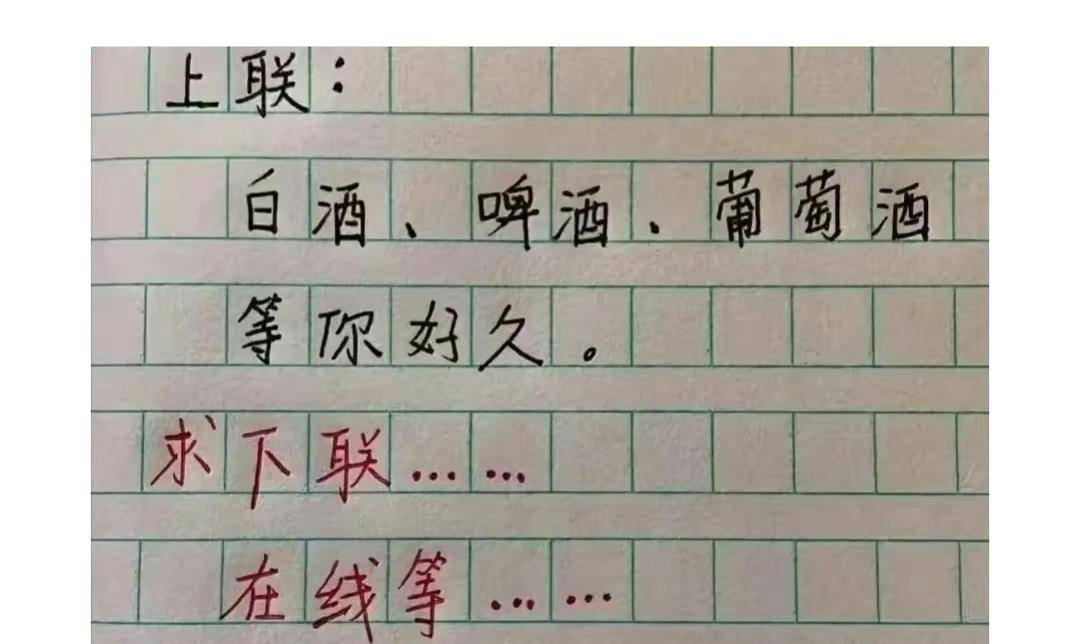 上联：
白酒、啤酒、葡萄酒
等你好久。
求下联……
在线等……